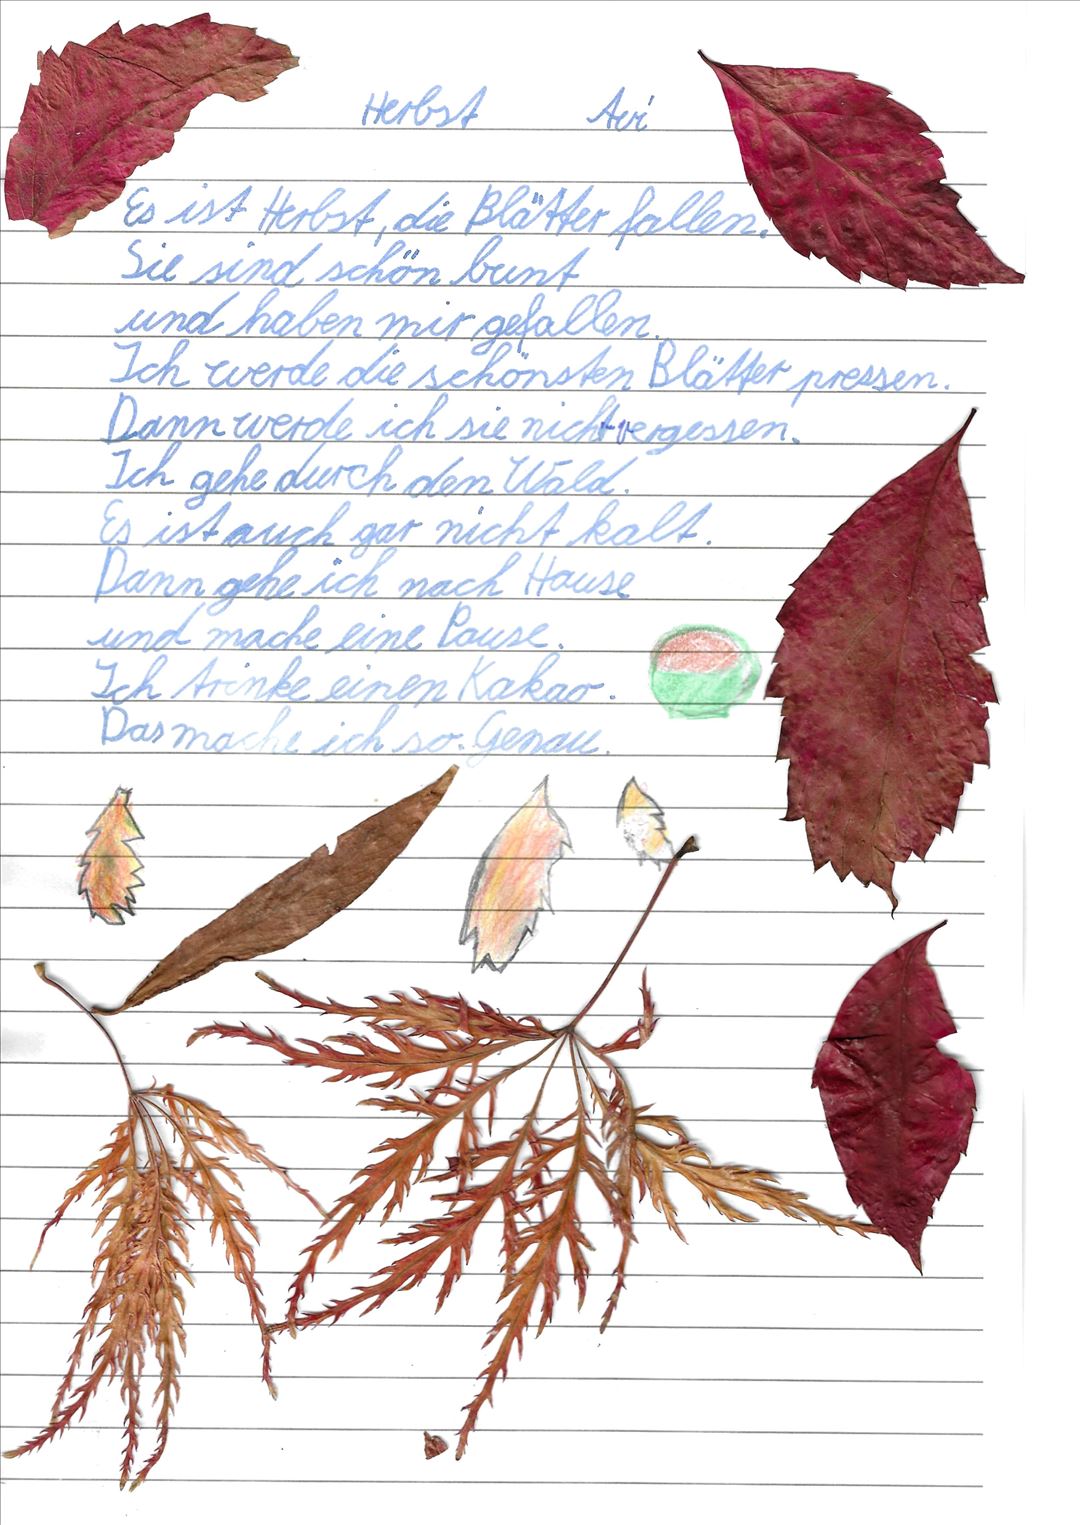 Herbst Avi
Es ist Herbst, die Blätter fallen.
Sie sind schön bunt
und haben mir gefallen.
Ich werde die schönsten Blätter pressen.
Dann werde ich sie nicht vergessen.
Ich gehe durch den Wald.
Es ist auch gar nicht kalt.
Dann gehe ich nach Hause
und mache eine Pause.
Ich trinke einen Kakao.
Das mache ich so. Genau.